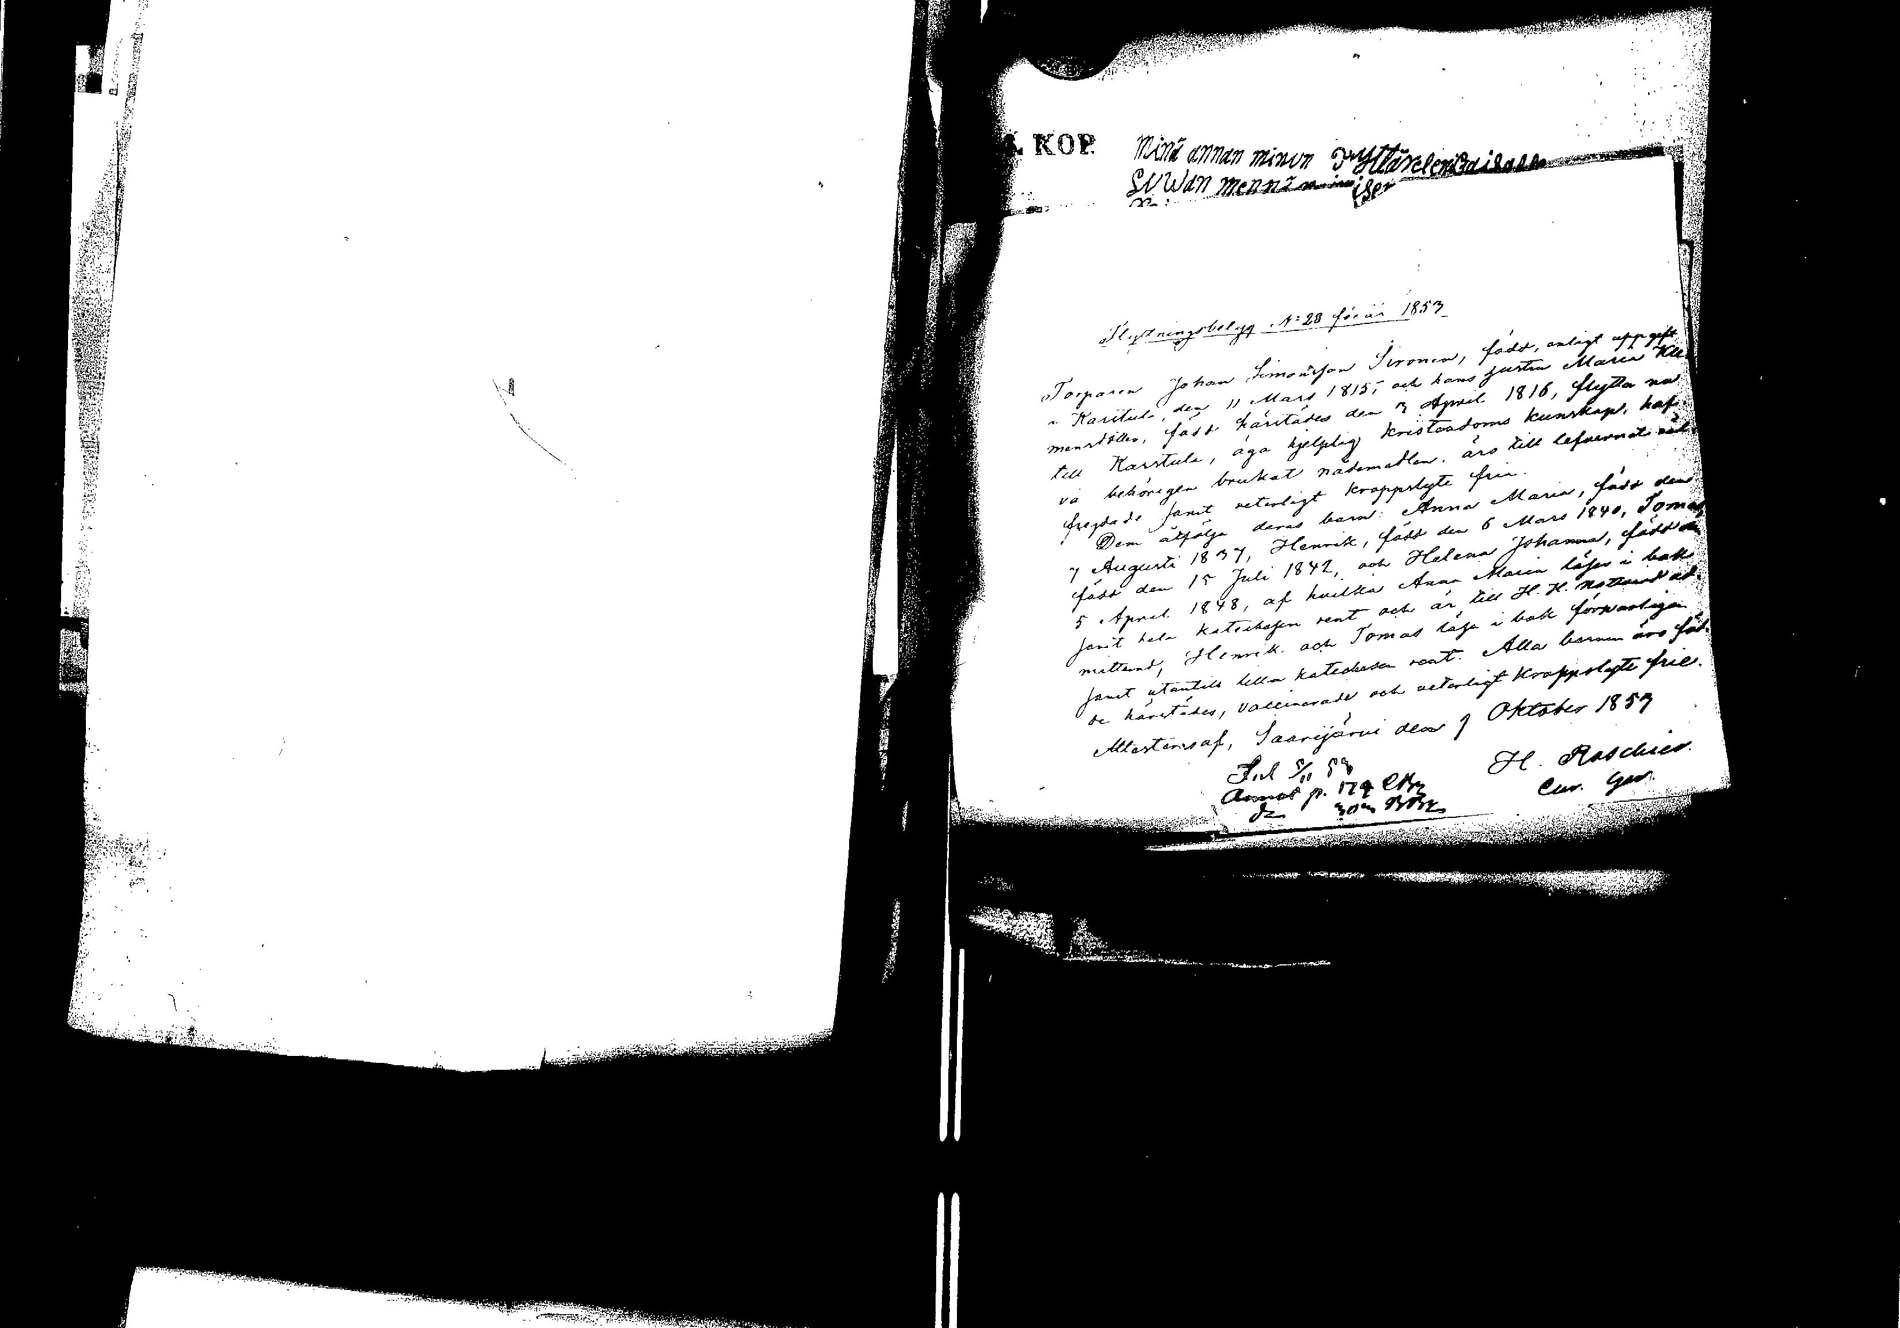 KOP.
Minä annan minun
SUWan
Flyttningsbetyg N:o 28 för år 1853
Torparen Johan Simonsson Sironen, född, enligt uppgift
i Karstula, den 11 Mars 1815, och hans hustru Maria Kle-
mensdotter, född härstädes den 3 April 1816, flytta nu
till Karstula, äga hjelplig kristendoms kunskap, haf-
va behörigen brukat nådemedlen, äro till lefvernet väl-
frejdade samt veterligt kroppslyte fria.
Dem åtfölja deras barn: Anna Maria, född den
7 Augusti 1837, Henrik, född den 6 Mars 1840, Tomas,
född den 15 Juli 1842, och Helena Johanna, född den
5 April 1848, af hvilka Anna Maria läser i bok
samt hela katechesen rent och är till H. H. Nattvard ad-
mitterad, Henrik och Tomas läsa i bok försvarligen
samt utantill lilla katechesen rent. Alla barnen äro föd-
de härstädes, vaccinerade och veterligt kroppslyte frie.
Attesteras af, Saarijärvi den 9 Oktober 1853
H. Roschier
Cur. Ger.
p. 179